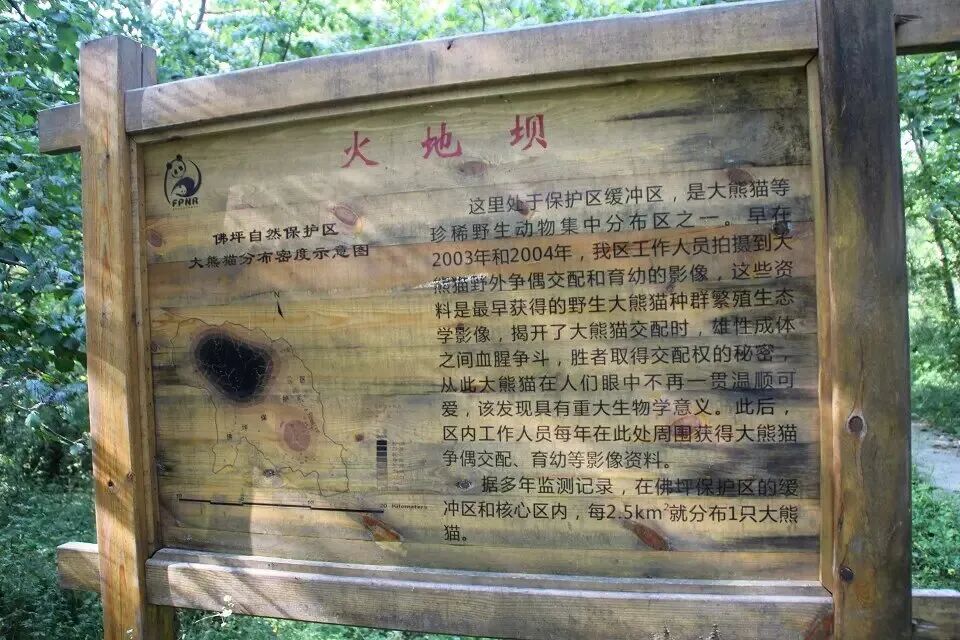 火地坝
FPNR
佛坪自然保护区
大熊猫分布密度示意图
N
20 Kilometers
这里处于保护区缓冲区，是大熊猫等
珍稀野生动物集中分布区之一。早在
2003年和2004年，我区工作人员拍摄到大
熊猫野外争偶交配和育幼的影像，这些资
料是最早获得的野生大熊猫种群繁殖生态
学影像，揭开了大熊猫交配时，雄性成体
之间血腥争斗，胜者取得交配权的秘密，
从此大熊猫在人们眼中不再一贯温顺可
爱，该发现具有重大生物学意义。此后，
区内工作人员每年在此处周围获得大熊猫
争偶交配、育幼等影像资料。
据多年监测记录，在佛坪保护区的缓
冲区和核心区内，每2.5km²就分布1只大熊
猫。